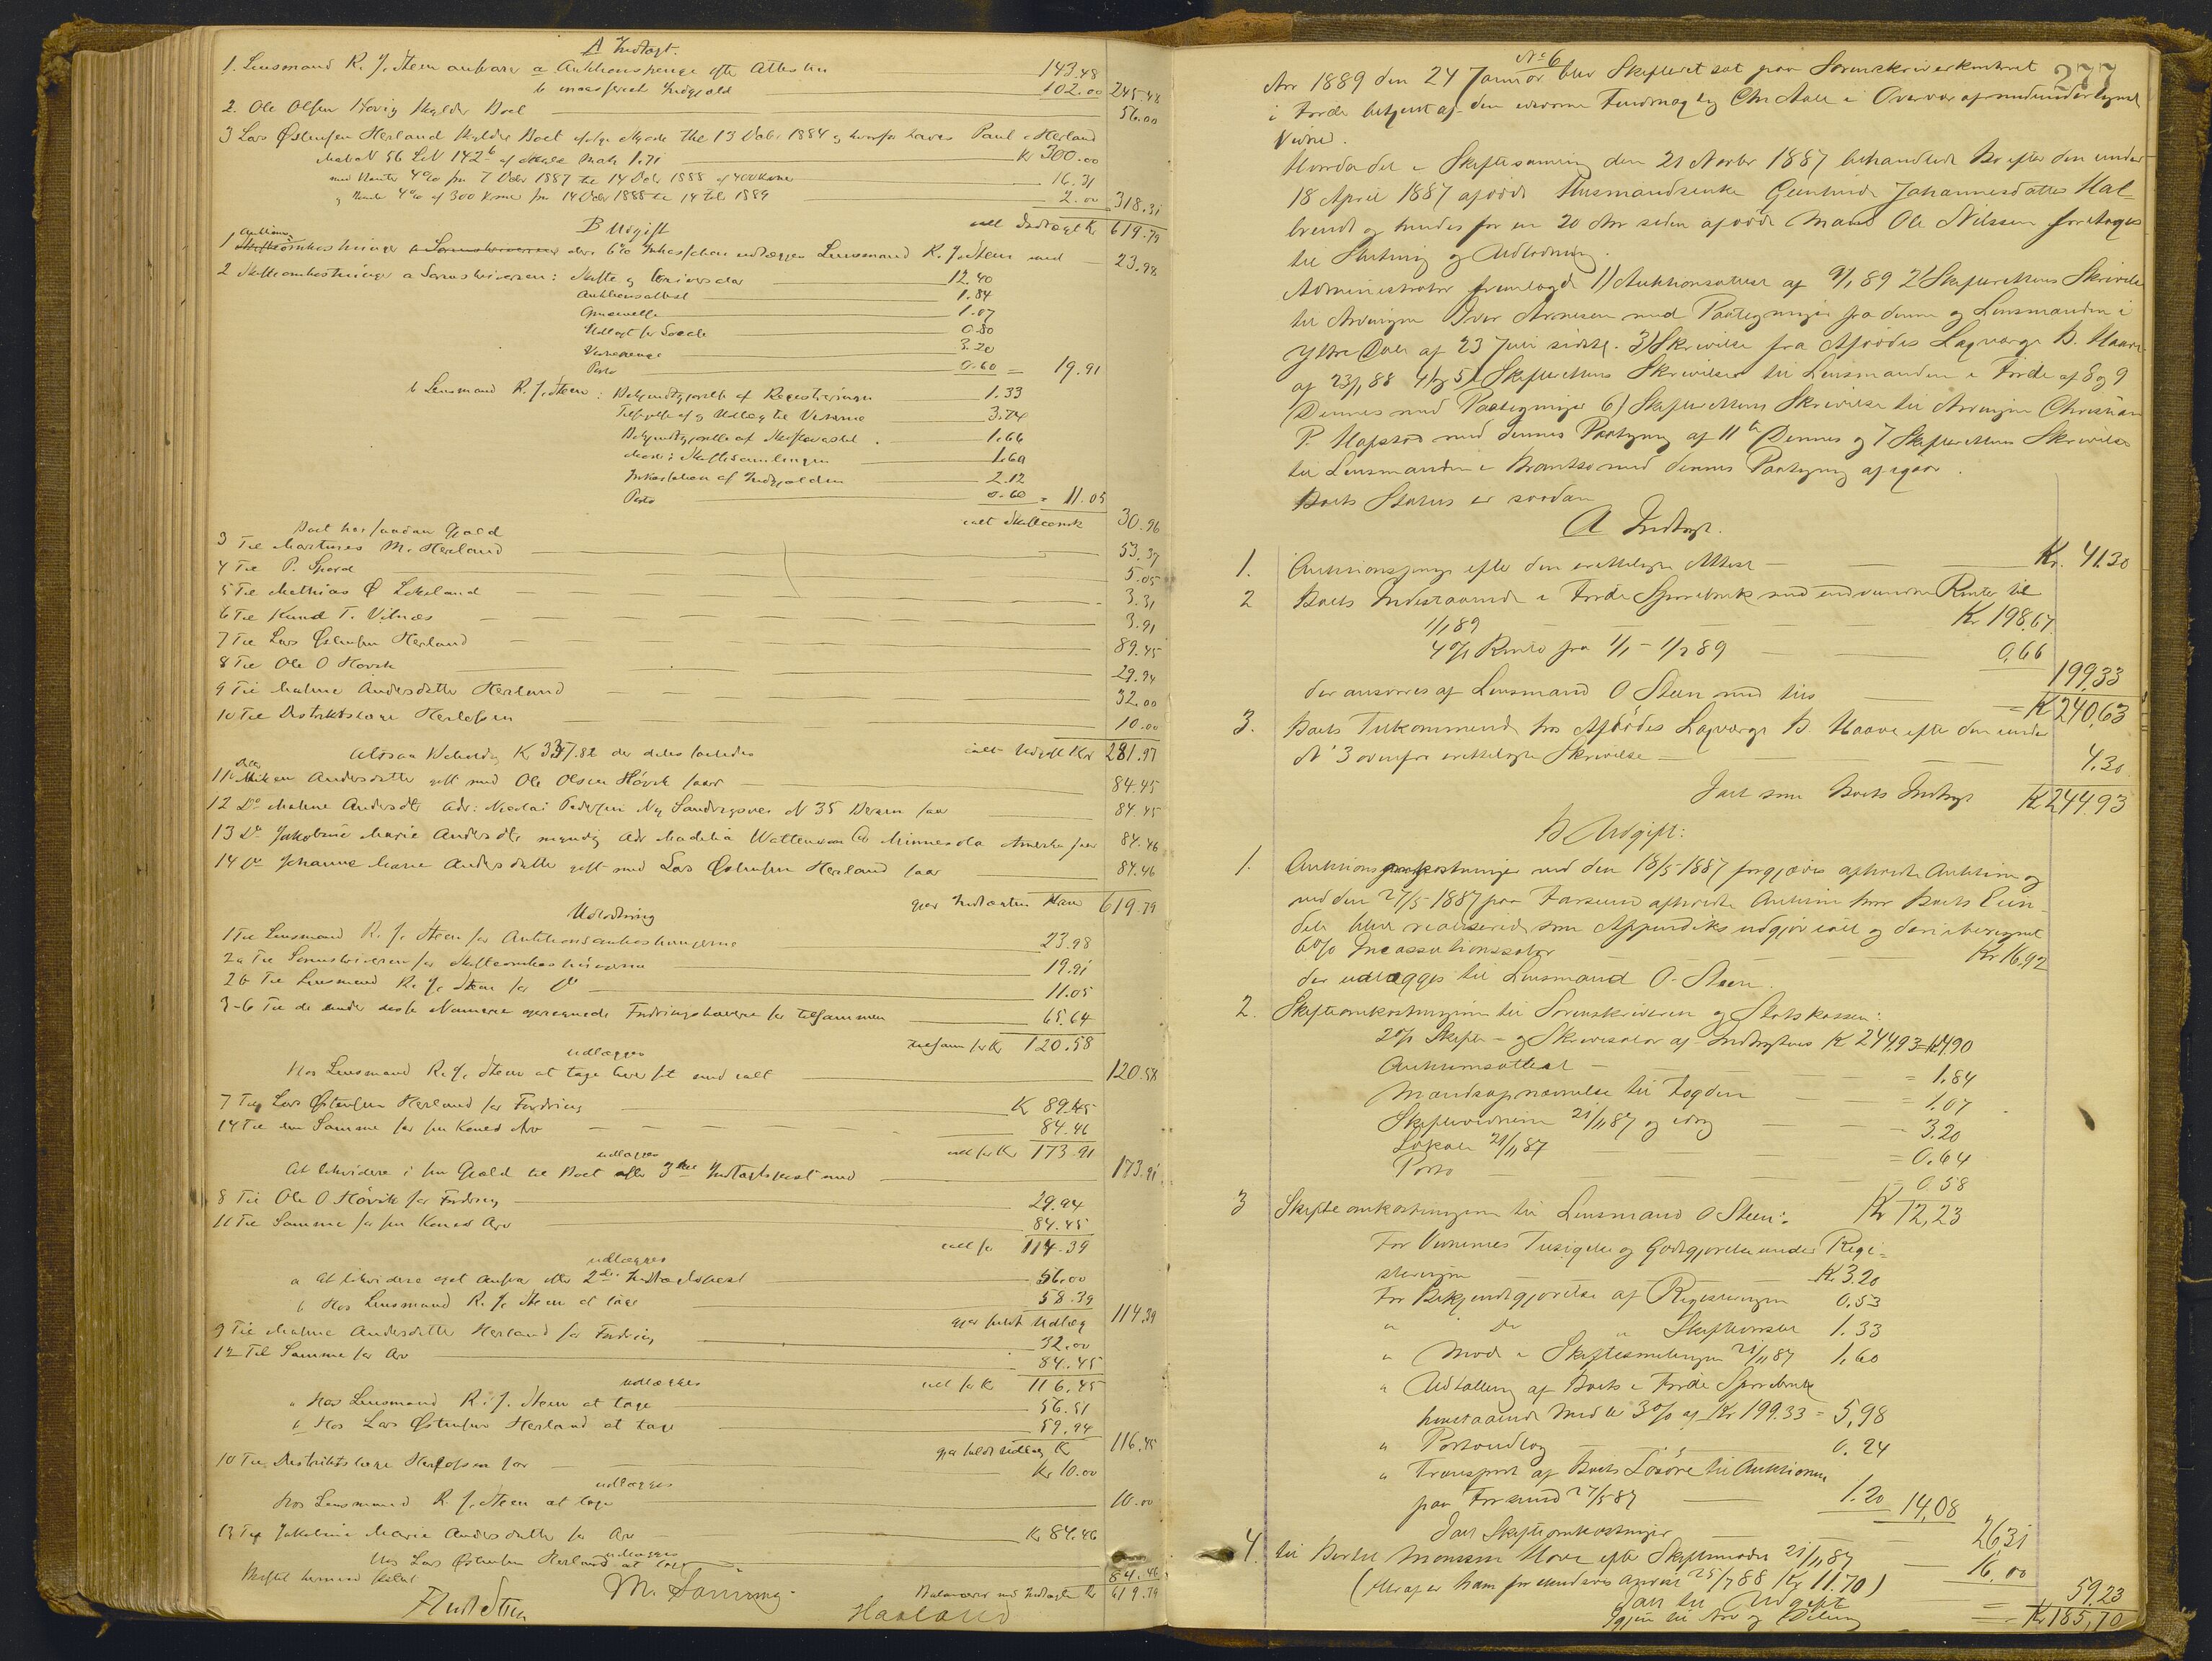 A Indtægt.
1. Lensmand R. J. Steen ansvarer a Auktionspenge efter Attesten 143.48
b indkasserede Indgjæld 102.00 245.48
2. Ole Olsen Hovig skylder Boet 56.00
3 Lars Østensen Herland skylder Boet ifølge Skjøde Thl 13 Oktbr 1884 Paul Herland
Mat N 56 LN 142 b af Skyld Mark 1.71 Kr 300.00
med Renter 4% fra 7 Dcbr 1887 til 14 Dcbr 1888 af 400 Kroner 16.31
og Rente 4% af 300 Kroner fra 14 Dcbr 1888 til 14 Feb 1889 2.00 318.31
B Udgift ialt Indtægt Kr 619.79
1 Auktionsomkostninger 6% Inkassation udlægges Lensmand R. J. Steen med 23.98
2 Skifteomkostninger a Sorenskriveren: Skifte og Skriversalær 12.40
Auktionsattest 1.84
1.07
Udlagt for Lokale 0.80
Vidnepenge 3.20
Porto 0.60 = 19.91
b Lensmand R. J. Steen: Bekjendtgjørelse af Registreringen 1.33
Tilsigelse af og Udlæg til Vidnerne 3.74
Bekjendtgjørelse af Skiftevarsel 1.66
Møde i Skiftesamlingen 1.60
Inkassation af Indgjælden 2.12
Porto 0.60 = 11.05
Boet har saadan Gjæld ialt Skifteomk 30.96
3 Til Martinus M. Herland 53.37
4 Til P. 5.05
5 Til Mathias Ø Lokeland 3.31
6 Til Knud T. Vilnæs 3.91
7 Til Lars Østensen Herland 89.45
8 Til Ole O Hovik 29.94
9 Til Malene Andersdatter Herland 32.00
10 Til Distriktslæge Herlofsen 10.00
Altsaa Beholdn K 337.82 der deles saaledes ialt Udgift Kr 281.97
11 Andersdatter gift med Ole Olsen Hovik faar 84.45
12 Do Malene Andersdtr adr: Nicolai Pedersen Ny Sandvigsvei N 35 Bergen faar 84.45
13 Do Jakobine Marie Andersdtr myndig adr Madelia Wattenwan Co Minnesota Amerika faar 84.46
14 Do Johanne Marie Andersdatter gift med Lars Østensen Herland faar 84.46
gjør Indtægten Kroner 619.79
Udlodning
1 Til Lensmand R. J. Steen for Auktionsomkostningerne 23.98
2a Til Sorenskriveren for Skifteomkostningerne 19.91
2b Til Lensmand R. J. Steen for Do 11.05
3-6 Til de under disse Numere opregnede Fordringshavere for tilsammen 65.64
udlægges tilsam for Kr 120.58
Hos Lensmand R. J. Steen at tage med ialt 120.58
7 Til Lars Østensen Herland for Fordring Kr 89.45
14 Til den Samme for sin Kones Arv 84.46
udlægges ialt for Kr 173.91
At likvidere i sin Gjæld til Boet efter 3die Indtægtspost med 173.91
8 Til Ole O. Hovik for Fordring 29.94
11 Til Samme for sin Kones Arv 84.45
udlægges ialt for 114.39
a At likvidere eget Ansvar efter 2den Indtægtspost 56.00
b Hos Lensmand R. J. Steen at tage 58.39
gjør fuldt Udlæg 114.39
9 Til Malene Andersdatter Herland for Fordring 32.00
12 Til Samme for Arv 84.45
udlægges ialt for K 116.45
a Hos Lensmand R. J. Steen at tage 56.51
b Hos Lars Østensen Herland at tage 59.94
gjør fuldt Udlæg Kr 116.45
10 Til Distriktslæge Herlofsen for Kr 10.00
udlægges
Hos Lensmand R. J. Steen at tage 10.00
13 Til Jakobine Marie Andersdatter for Arv Kr 84.46
udlægges
Hos Lars Østensen Herland at tage 84.46
Skiftet hermed sluttet Balancerer med Indtægten Kr 619.79
M. Sonning
Haaland
277
No 6
Aar 1889 den 24 Januar blev Skifteret sat paa Sorenskriverkontoret
i Førde betjent af den edsvorne Fuldmægtig Chr Aall i Overvær af medundertegned
Vidne.
Hvorda det i Skiftesamling den 21 Novbr 1887 behandlede Bo efter den under
18 April 1887 afdøde Husmandsenke Gunhild Johannesdatter Hal-
brendt og hendes for en 20 Aar siden afdøde Mand Ole Nilssen foretages
til Slutning og Udlodning.
Administrator fremlagde 1) Auktionsattest af 9/1 89 2) Skifterettens Skrivelse
til Arvingen Iver Arnesen med Paategninger fra denne og Lensmanden i
Ytre Dale af 23 Juli sidstl. 3) Skrivelse fra Afdødes Lagværge B. Haave
af 23/1 88 4) og 5) Skifterettens Skrivelser til Lensmanden i Førde af 8 og 9
Dennes med Paategninger 6) Skifterettens Skrivelse til Arvingen Christian
P. Hafstad med dennes Paategning af 11te Dennes og 7 Skifterettens Skrivelse
til Lensmanden i Bremanger med dennes Paategning af igaar.
Boets Status er saadan
A Indtægt.
1. Auktionspenge efter den vedlagte Attest Kr. 41.30
2 Boets Indestaaende i Førde Sparebank med indvundne Renter til
1/1 89 Kr 198,67.
4% Rente fra 1/1 - 1/2 89 0,66
199,33
der ansvares af Lensmand O Steen med tils = K 240,63
3. Boets Tilkommende hos Afdødes Lagværge B. Haave efter den under
N 3 ovenfor vedlagte Skrivelse 4,30
Ialt som Boets Indtægt K 244,93
B Udgift:
1. Auktionsomkostninger ved den 18/5 1887 forgjæves afholdte Auktion og
ved den 27/5 1887 paa Farsund afholdte Auktion hvor Boets Eien-
dele blev realiserede som Appendiks udgjør ialt og deri iberegnet
6% Incassationssalær Kr 16,92
der udlægges til Lensmand O. Steen.
2. Skifteomkostningerne til Sorenskriveren og Statskassen:
2% Skifte- og Skriversalær af Indtægtens K 244,93 = K 4,90
Auktionsattest = 1,84
Mandsopnævnelse til Fogden = 1,07
Skiftevidnerne 21/11 87 og idag 3.20
Lokale 21/11 87 = 0,64
Porto = 0.58
Kr 12,23
3 Skifteomkostningerne til Lensmand O Steen:
For Vidnernes Tilsigelse og Godtgjørelse under Regi-
streringen K. 3.20
For Bekjendtgjørelse af Registreringen 0,53
" Do " Skiftevarsel 1.33
" Møde i Skiftesamlingen 21/11 87 1,60
" Udtalling af Boets i Førde Sparebank
henstaaende Midler 3% af Kr 199.33 = 5,98
" Portoudlæg 0.24
" Transport af Boets Løsøre til Auktionen
paa Farsund 27/5 87 1.20 14,08
Ialt Skifteomkostninger 26,31
4. til Bertel Monssen Hove efter Skiftemøde 21/11 87 16,00
(Heraf er ham forskudsvis anvist 25/7 88 Kr 11.70)
Ialt til Udgift = 59,23
Igjen til Arv og Deling = Kr 185,70